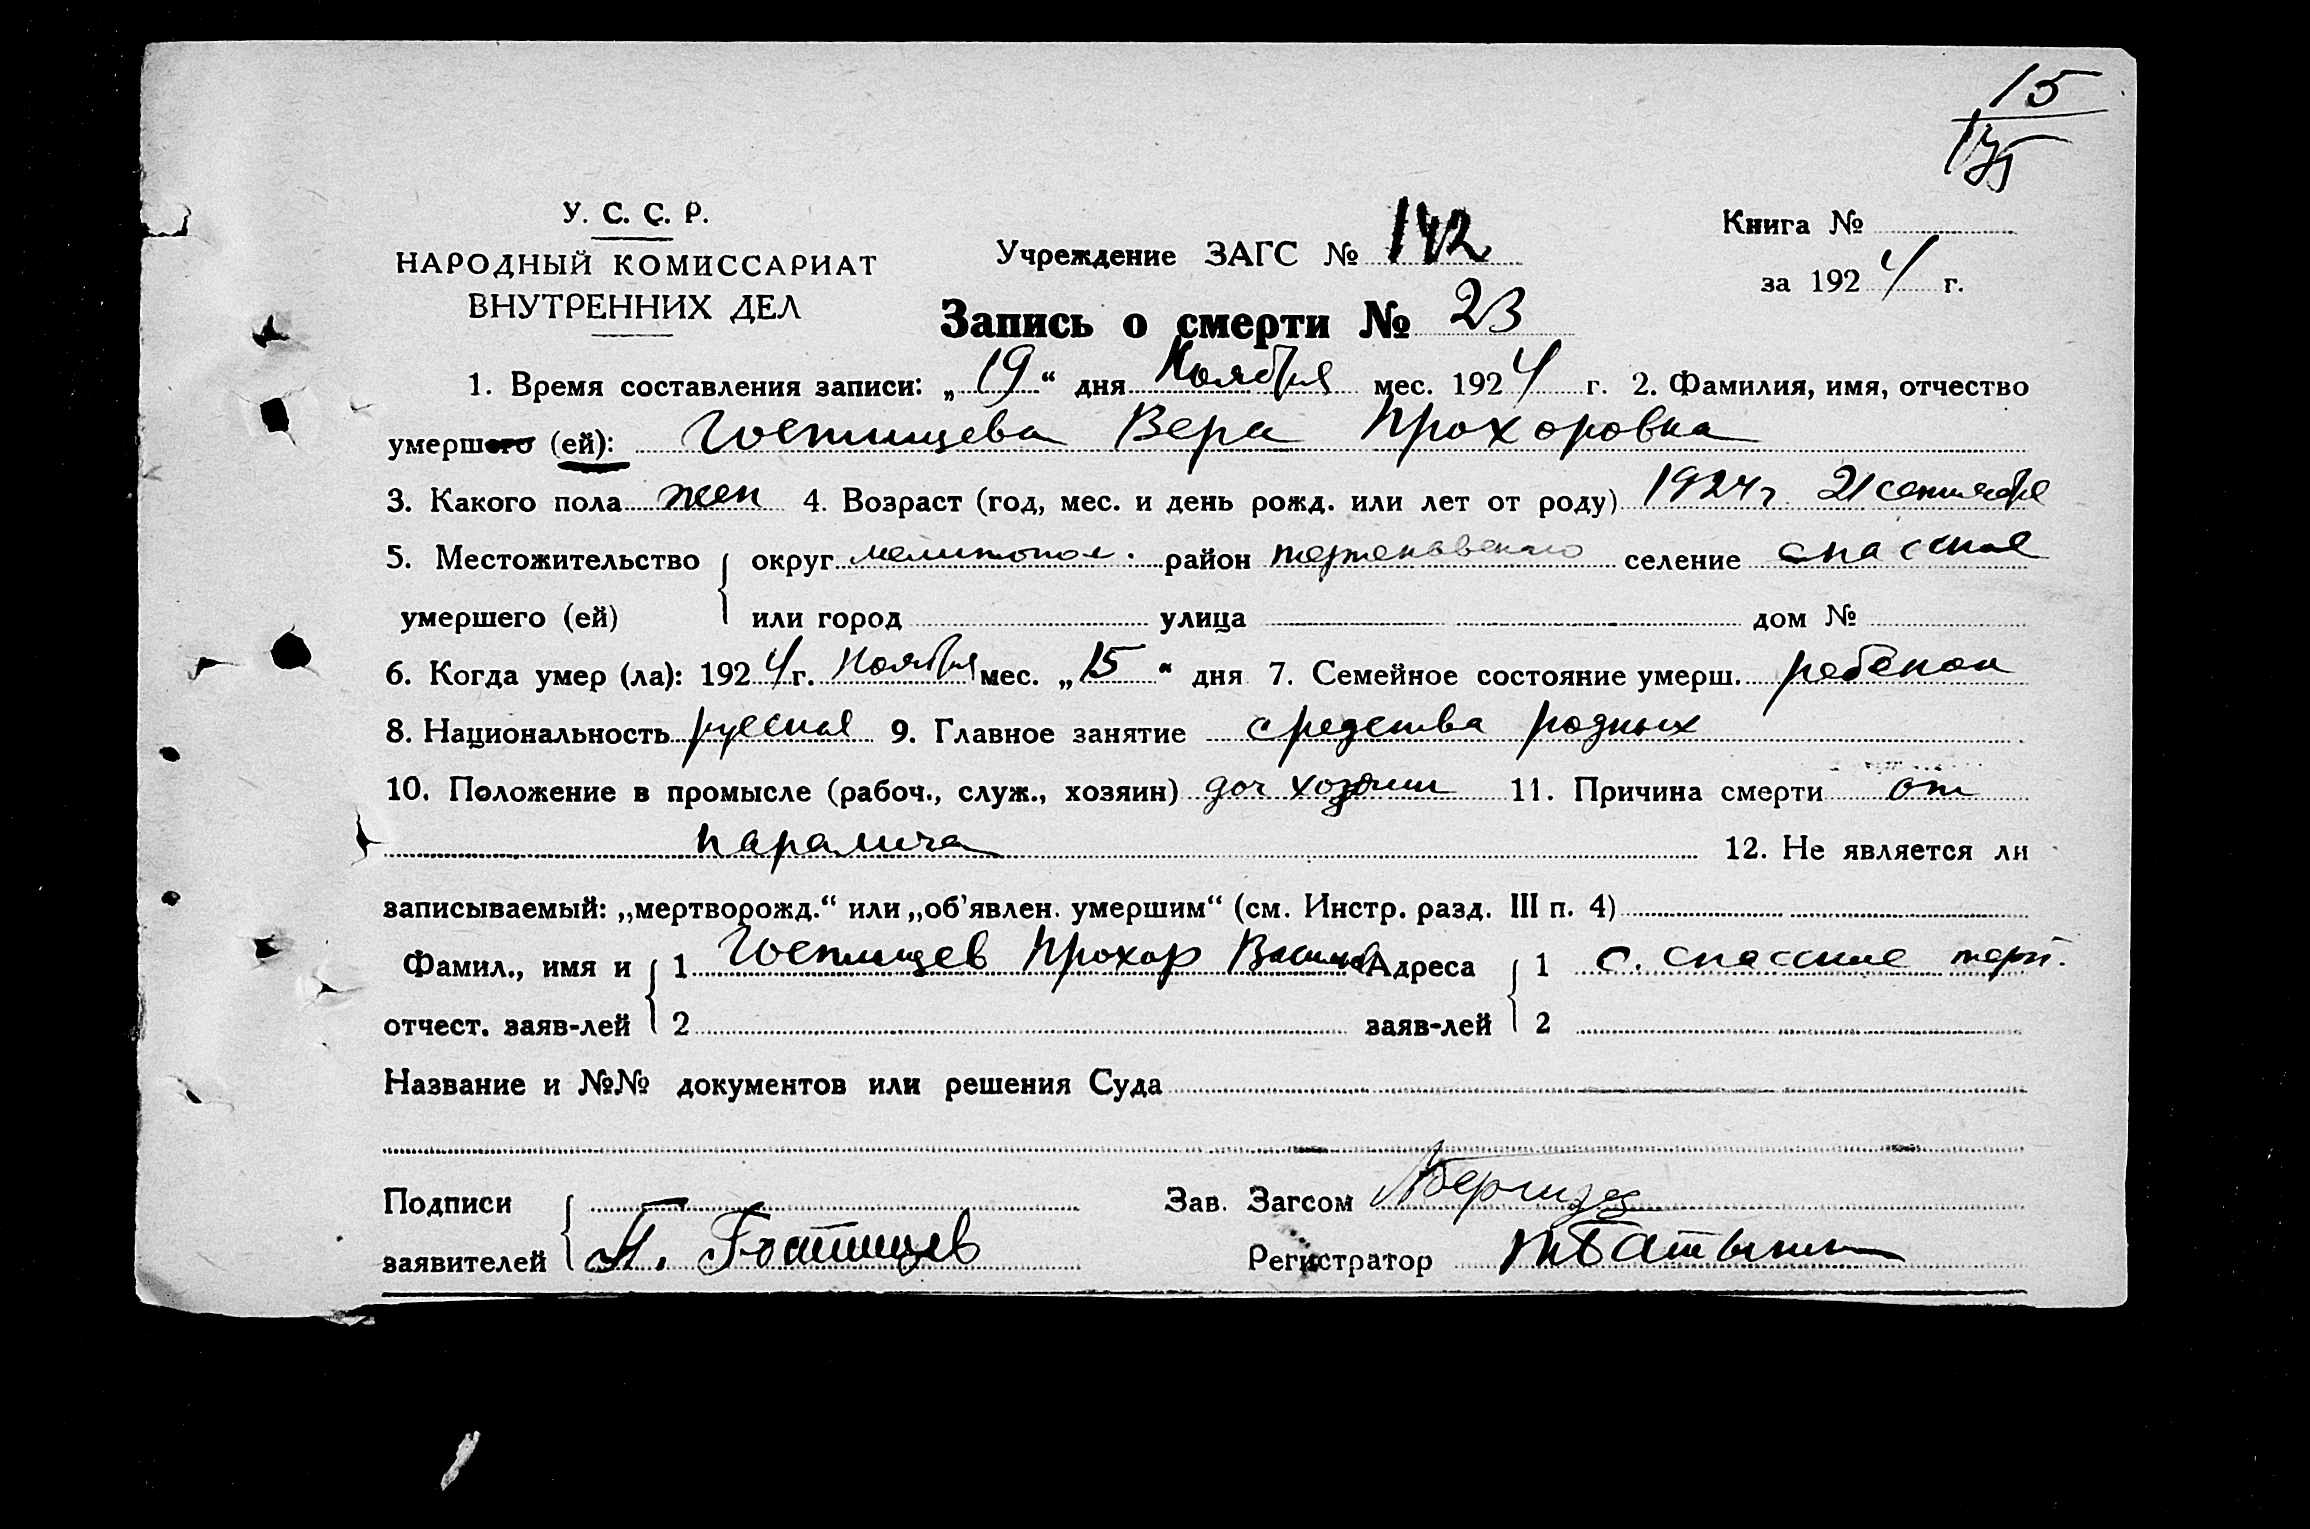 15
175
У. С. С. Р.
НАРОДНЫЙ КОМИССАРИАТ
ВНУТРЕННИХ ДЕЛ
Учреждение ЗАГС № 142
Книга №
за 1924 г.
Запись о смерти № 23
1. Время составления записи: „19“ дня Ноября мес. 1924 г. 2. Фамилия, имя, отчество
умершего (ей): Гостищева Вера Прохоровна
3. Какого пола жен 4. Возраст (год, мес. и день рожд. или лет от роду) 1924 г. 21 сентября
5. Местожительство округ мелитопол. район селение спасское
умершего (ей) или город улица дом №
6. Когда умер (ла): 1924 г. Ноября мес. „15“ дня 7. Семейное состояние умерш. ребенок
8. Национальность русская 9. Главное занятие средства родных
10. Положение в промысле (рабоч., служ., хозяин) доч хозяин 11. Причина смерти от
паралича 12. Не является ли
записываемый: „мертворожд.“ или „об'явлен. умершим“ (см. Инстр. разд. III п. 4)
Фамил., имя и 1 Гостищев Прохор Адреса 1 с. спасское терп.
отчест. заяв-лей 2 заяв-лей 2
Название и №№ документов или решения Суда
Подписи Зав. Загсом
заявителей П. Гостищев Регистратор